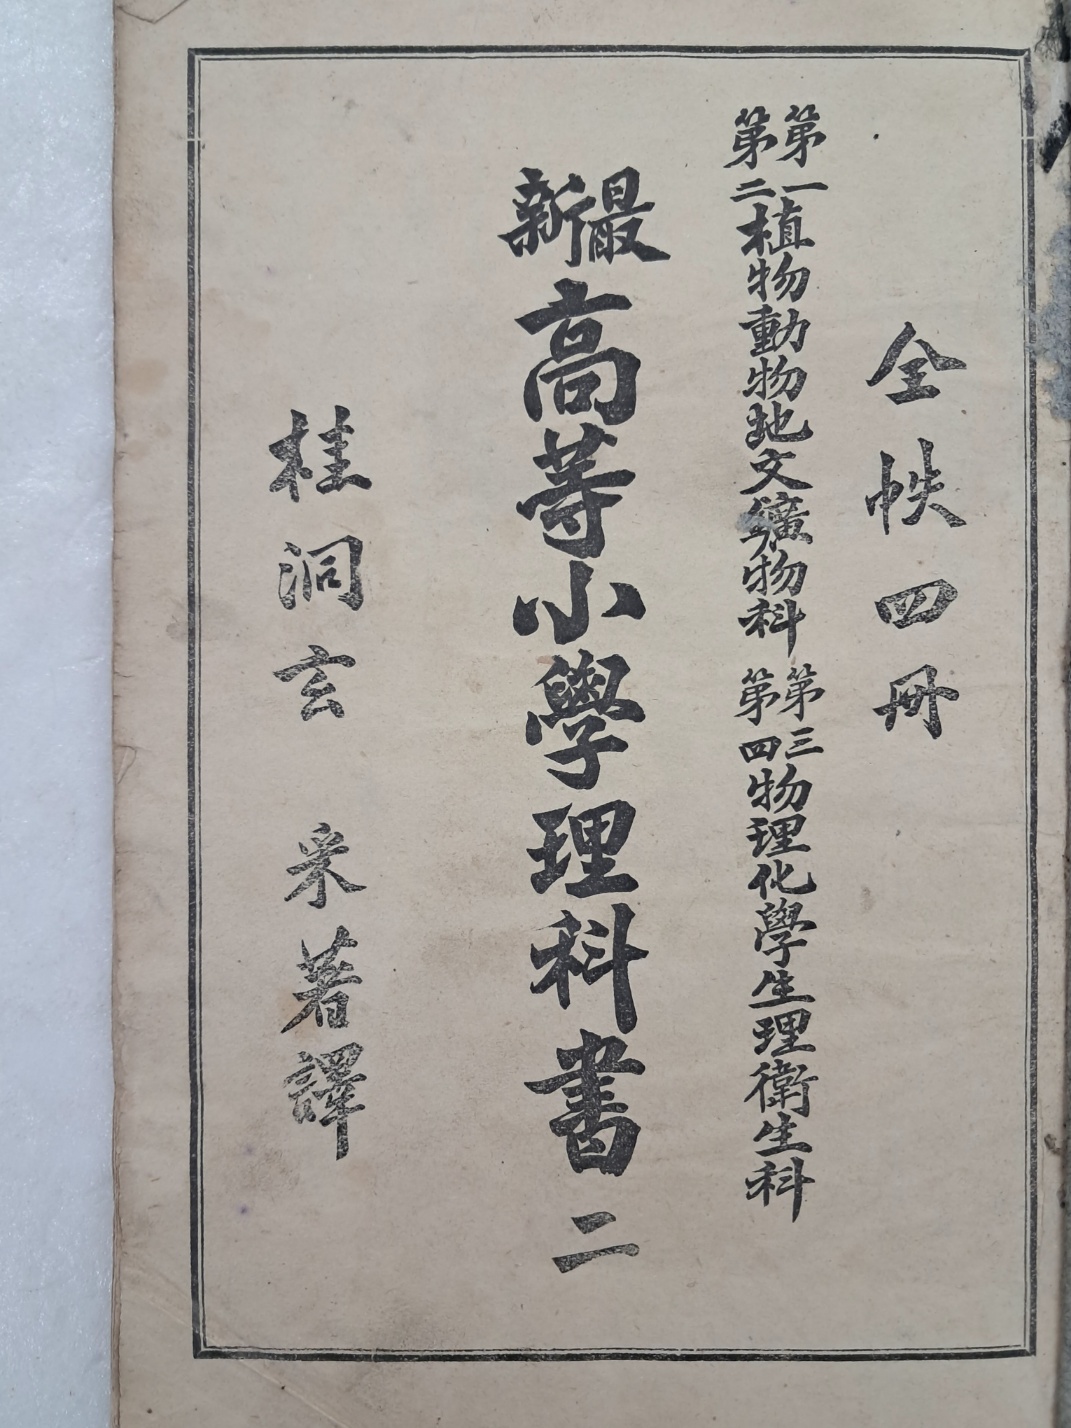 全帙四冊
第一第二植物動物地文鑛物科 第三第四物理化學生理衛生科
最新高等小學理科書 二
桂洞玄 采著譯